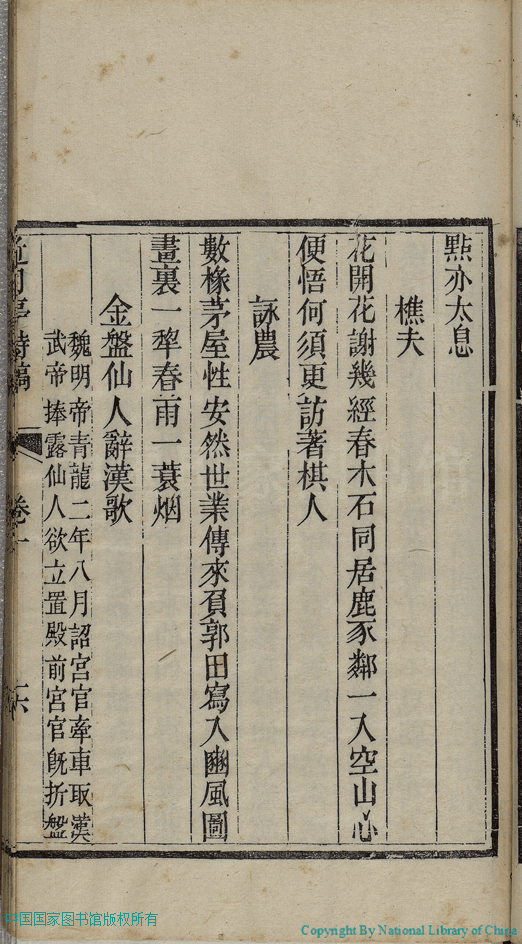 點亦太息
樵夫
花開花謝幾經春木石同居鹿豕鄰一入空山心
便悟何須更訪著棋人
詠農
數椽茅屋性安然世業傳來負郭田寫入豳風圖
畫裏一犂春雨一蓑烟
金盤仙人辭漢歌
魏明帝青龍二年八月詔宮官牽車取漢
武帝捧露仙人欲立置殿前宮官旣折盤
亭詩稿 卷一 六
中国国家图书馆版权所有
Copyright By National Library of China